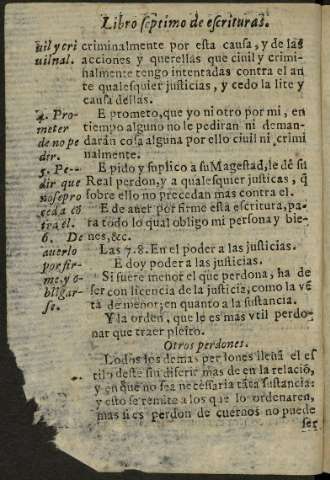 Libro septimo de escrituras.
uil y cri
uilnal.
criminalmente por esta causa, y de las
acciones y querellas que ciuil y crimi-
nalmente tengo intentadas contra el an
te qualesquier justicias, y cedo la lite y
causa dellas.
4. Pro-
meter
de no pe
dir.
E prometo, que yo ni otro por mi, en
tiempo alguno no le pediran ni deman-
darán cosa alguna por ello ciuil ni crimi
nalmente.
5. Pe-
dir que
no se pro
ceda cō
tra él.
E pido y suplico a su Magestad, le dé su
Real perdon, y a qualesquier justicas, q̃
sobre ello no precedan mas contra el.
6. De
auerlo
por fir-
me, y o-
bligar-
se.
E de auer por firme esta escritura, pa-
ra todo lo qual obligo mi persona y bie-
nes, &c.
Las 7. 8. En el poder a las justicias.
E doy poder a las justicias.
Si fuere menor el que perdona, ha de
ser con licencia de la justicia, como la vē
ta de menor; en quanto a la sustancia.
Y la orden, que le es mas vtil perdo-
nar que traer pleito.
Otros perdones.
Todos los demas perdones lleuā el es
tilo deste sin diferir mas de en la relació,
y en que no sea necessaria tāta sustancia:
y esto se remite a los que lo ordenaren,
mas si es perdon de cuernos no puede
ser